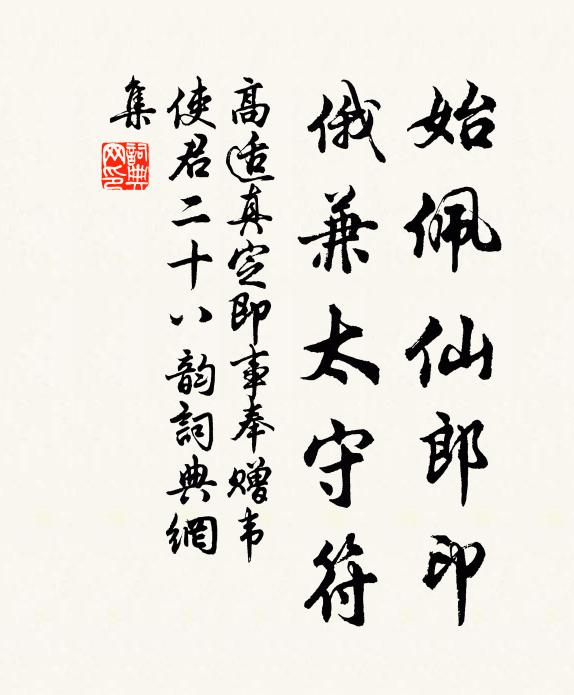 始佩仙郎印
俄兼太守符
高适真定即事奉赠韦
使君二十八韵詞典網
集
詞典
网印